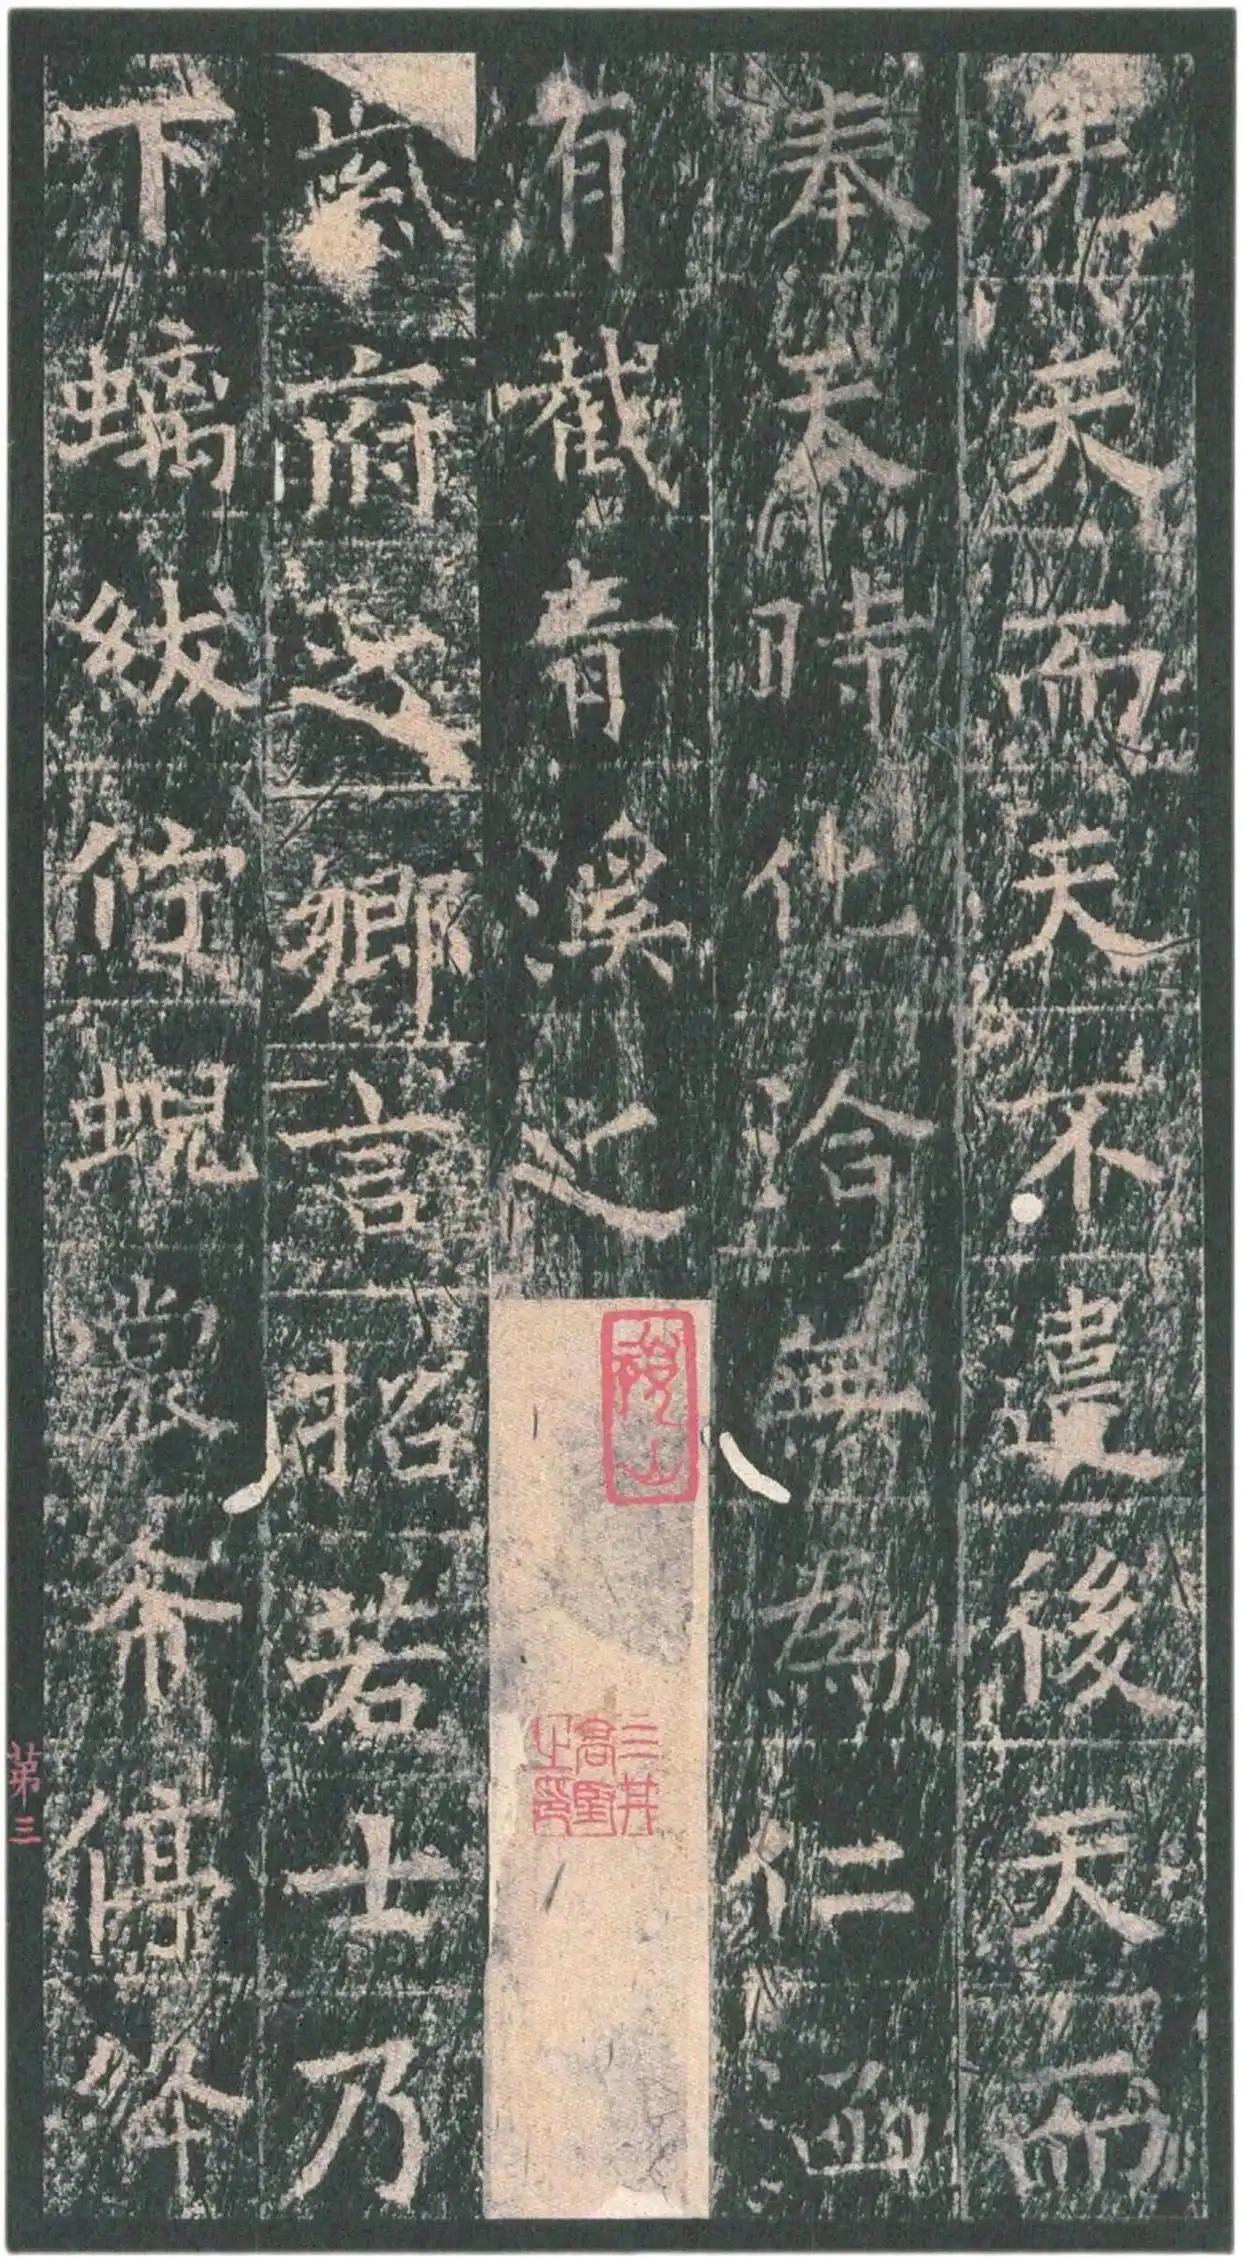 先天而天不違後天而
奉天時化洽無為仁涵
有截青溪之
府之鄉言招若士乃
下螭紱佇蜺裳停絳
山
三井高堅之印
第三